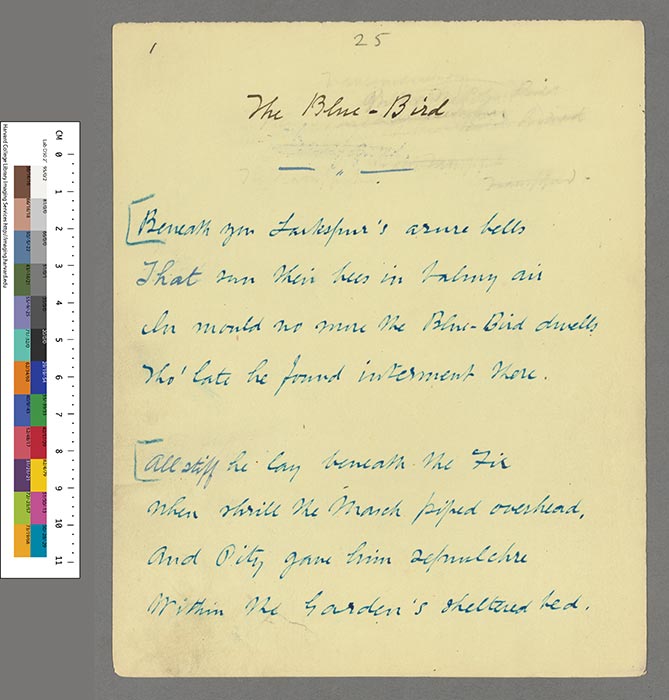 1
25
The Blue-Bird
Beneath yon Larkspur's azure bells
That sun their bees in balmy air
In mould no more the Blue-Bird dwells
Tho' late he found interment there.
All stiff he lay beneath the Fir
When shrill the March piped overhead,
And Pity gave him sepulchre
Within the Garden's sheltered bed.
CM 0 1 2 3 4 5 6 7 8 9 10 11
Harvard College Library Imaging Services http://imaging.harvard.edu